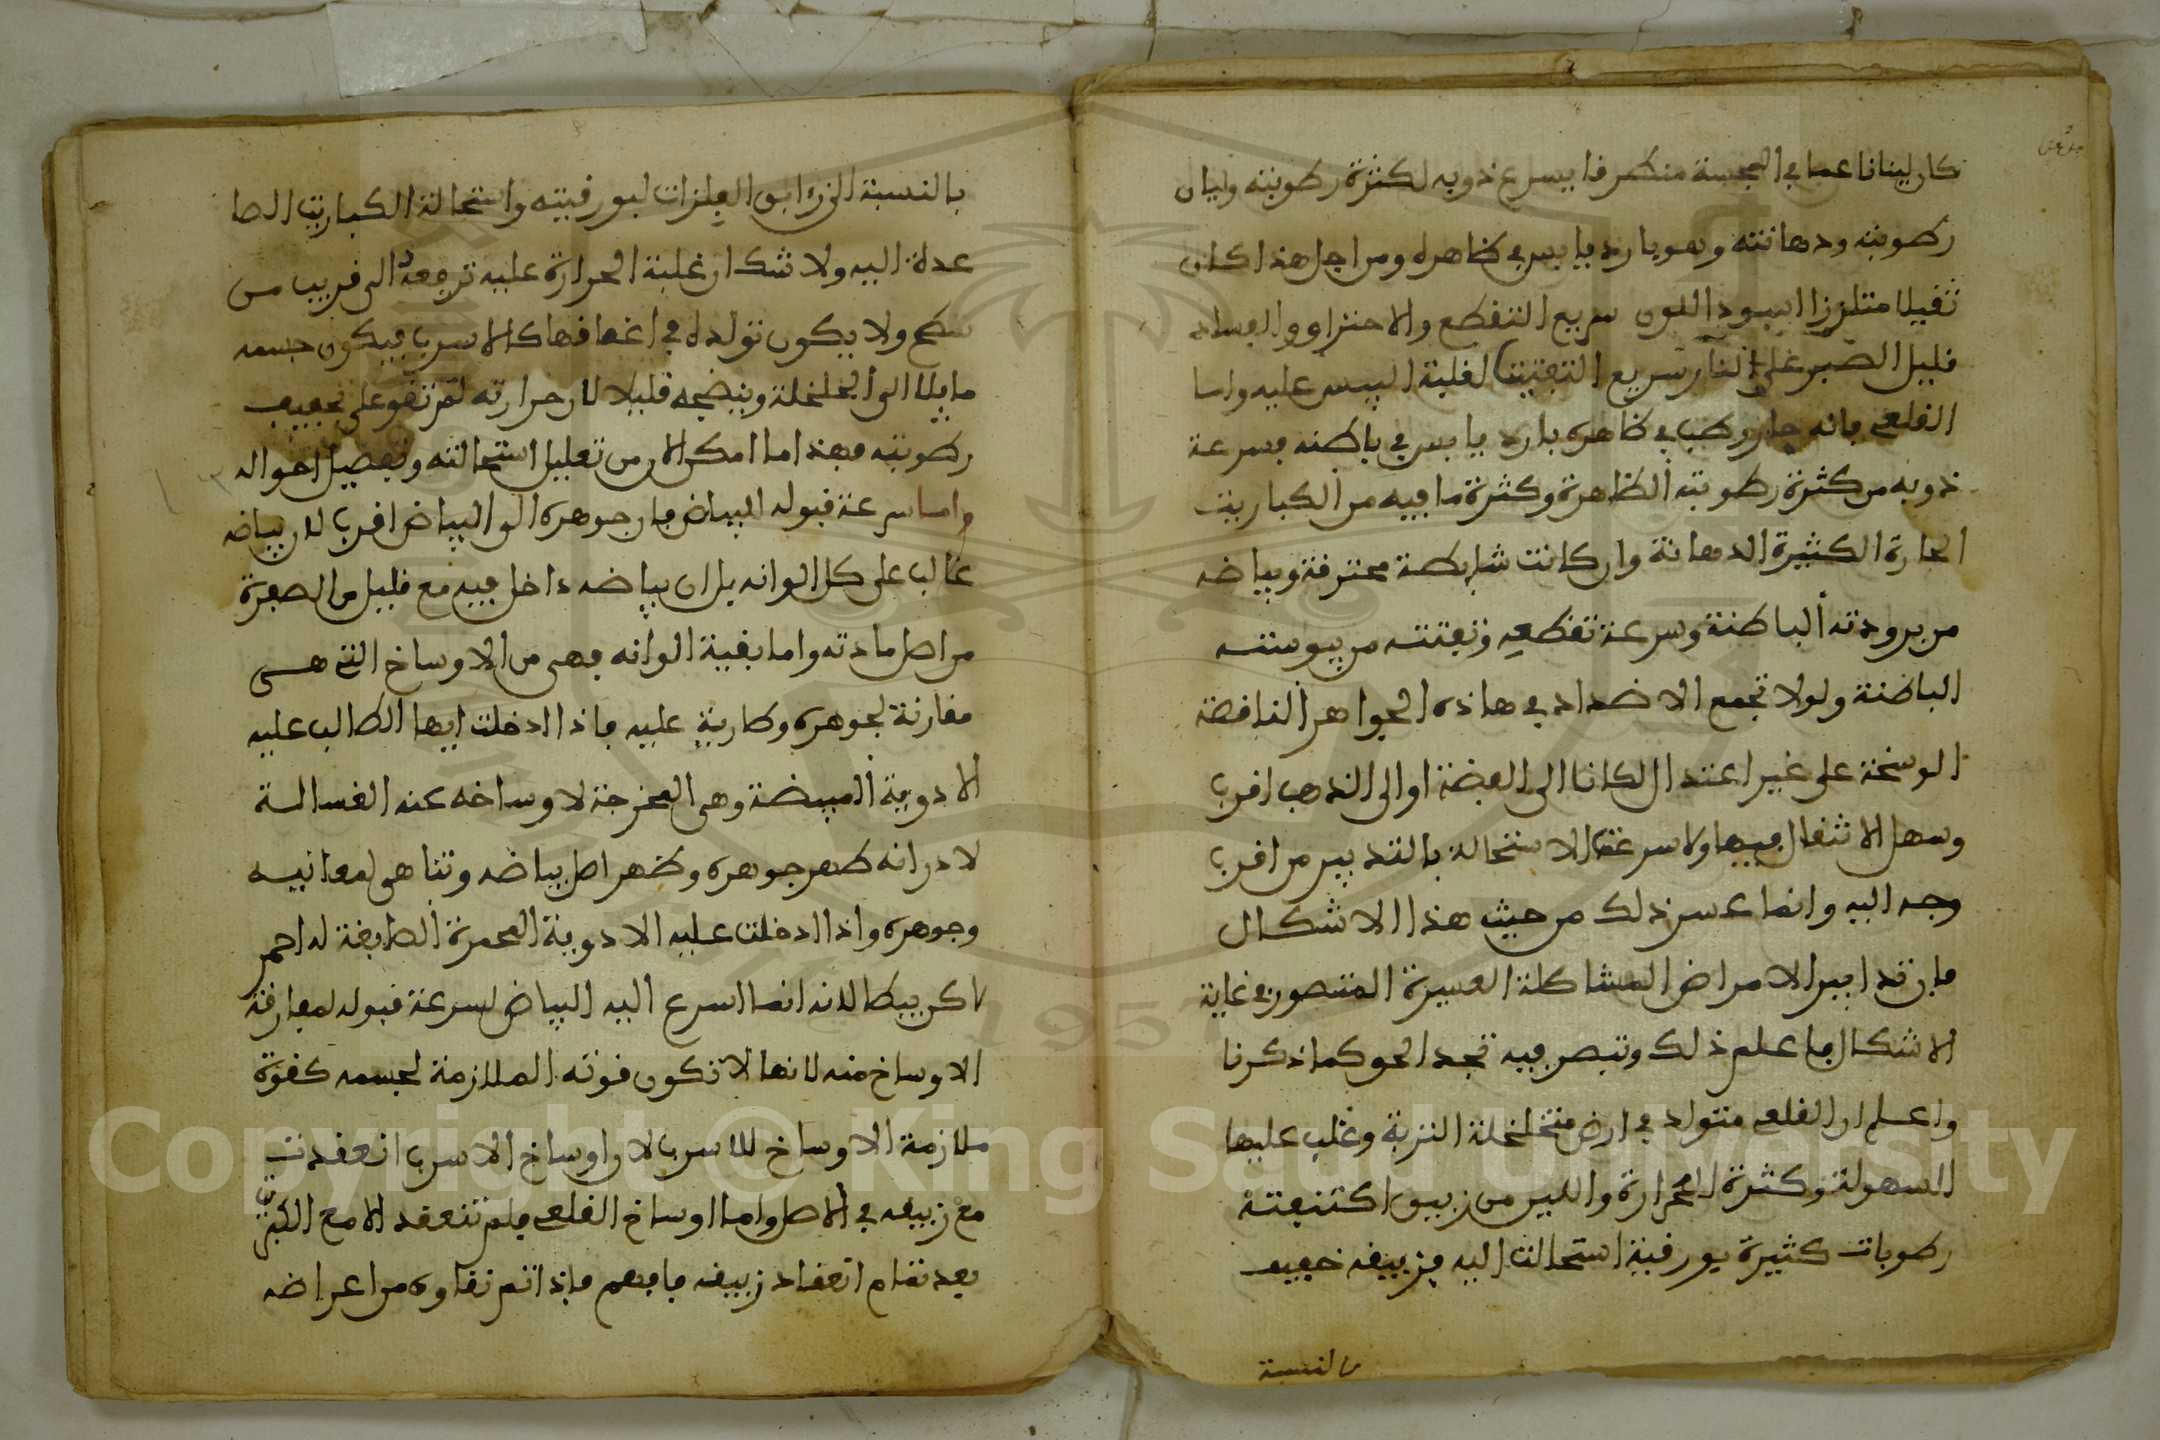 كان لينا ناعما في المجسة منطرفا يسرع ذوبه لكثرة رطوبته وليان
رطوبته ودهانته وهو بارد يابس في ظاهره ومن اجل هذا كان
ثقيلا متلززا اسود اللون سريع التقطع والاحتراق والفساد
قليل الصبر على النار سريع التفتيت لغلبة اليبس عليه واما
القلعي فانه حار رطب في ظاهره بارد يابس في باطنه فسرعة
ذوبه من كثرة رطوبته الظاهرة وكثرة ما فيه من الكباريت
الحارة الكثيرة الدهانة وان كانت شايطة محترقة وبياضه
من برودته الباطنة وسرعة تقطعه وتفتته من يبوسته
الباطنة ولولا تجمع الاضداد في هاذه الجواهر الناقصة
الوسخة على غير اعتدال لكانا الى الفضة او الى الذهب اقرب
وسهل الانتقال فيها ولا سرعة الاستحالة بالتدبير من اقرب
وجه اليه وانما عسر ذلك من حيث هذا الاشكال
فان تدابير الامراض المشاكلة العسيرة المتصور في غاية
الاشكال فاعلم ذلك وتبصر فيه تجد الحق كما ذكرنا
واعلم ان القلعي متولد في ارض متخلخلة التربة وغلب عليها
السهولة وكثرة الحرارة واللين من زيبق اكتنفته
رطوبات كثيرة بورقية استحالت اليه فزيبقه خفيف
بالنسبة
بالنسبة الى زءابق الفلزات لبورقيته واستحالة الكباريت الصا
عدة اليه ولا شك ان غلبة الحرارة عليه ترفعه الى قريب من
سطح ولا يكون تولده في اعماقها كالاسرب فيكون جسمه
مايلا الى الخلخلة وينضجه قليلا لان حرارته لم تقو على تجفيف
رطوبته فهذا ما امكن الان من تعليل استحالته وتفصيل احواله
واما سرعة قبوله البياض فان جوهره الى البياض اقرب لان بياضه
غالب على كل الوانه بل ان بياضه داخل فيه مع قليل من الصفرة
من اصل مادته واما بقية الوانه فهي من الاوساخ التي هي
مقارنة لجوهره وطارية عليه فاذا ادخلت ايها الطالب عليه
الادوية المبيضة وهي المخرجة لاوساخه عنه الغسالة
لادرانه طهر جوهره وظهر اصل بياضه وتناهى لمعانيه
وجوهره واذا ادخلت عليه الادوية المحمرة الصابغة له احمر
لاكن ببطا لانه انما اسرع اليه البياض لسرعة قبوله لمفارقة
الاوساخ منه لانها لا تكون قوته الملازمة لجسمه كقوة
ملازمة الاوساخ للاسرب لان اوساخ الاسرب انعقدت
مع زيبقه في الاصل واما اوساخ القلعي فلم تنعقد الا مع الكبريت
بعد تمام انعقاد زيبقه فافهم فاذا تم نقاوه من اعراضه